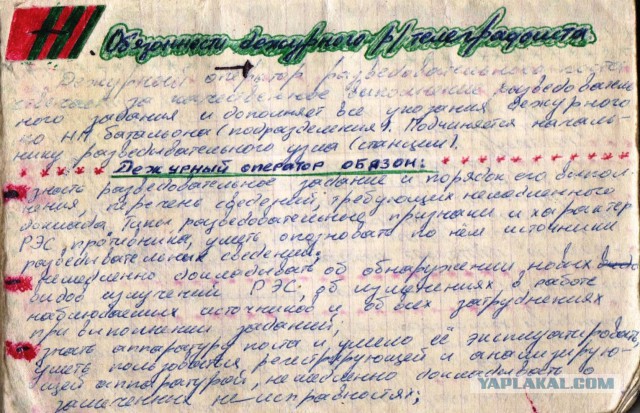 Обязанности дежурного р/телеграфиста
Дежурный оператор разведовательного поста
отвечает за качественное выполнение разведовател
ного задания и дополняет все указания дежурного
по НП батальона (подразделения). Подчиняется началь-
нику разведывательного узла (станции).
Дежурный оператор обязон:
знать разведовательное задание и порядок его выпол-
нения, перечень сведений, требующих немедленного
доклада. Типы, разведовательные признаки и характер
РЭС, противника, уметь опозновать по нем источники
разведывательных сведений;
немедленно докладывать об обнаружении новых
видов излучений РЭС; об изменениях в работе
наблюдаемых источников и об всех затруднениях
при выполнении заданий;
знать аппаратуру поста и умело её эксплуатировать,
уметь пользоватся регистрирующей и анализирую-
щей аппаратурой, немедленно докладывать о
замеченных неисправностях;
YAPLAKAL.COM